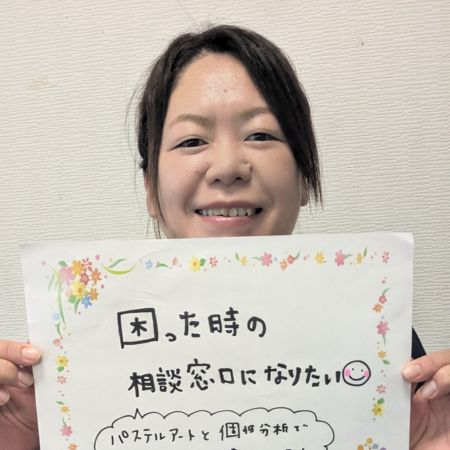 困った時の
相談窓口になりたい
パステルアートと個性分析で